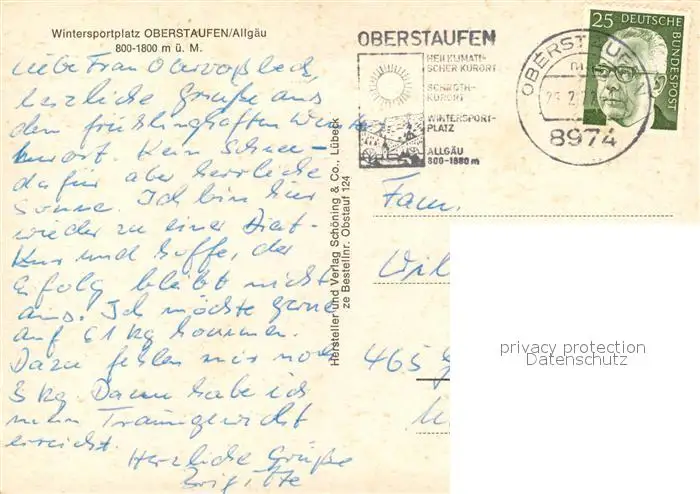 Wintersportplatz OBERSTAUFEN/Allgäu
800-1800 m ü. M.
Liebe Frau
herzliche Grüße aus
dem frühlinghaften Winter-
kurort. Kein Schnee -
dafür aber herrliche
Sonne. Ich bin hier
wieder zu einer Diät-
Kur und hoffe, der
Erfolg bleibt nicht
aus. Ich möchte gerne
auf 61 kg kommen.
Dazu fehlen mir noch
3 kg. Dann habe ich
mein Traumgewicht
erreicht.
Herzliche Grüße
Brigitte
Hersteller und Verlag Schöning & Co., Lübeck
ze Bestellnr. Obstauf 124
OBERSTAUFEN
HEILKLIMATI-
SCHER KURORT
SCHROTH-
KURORT
WINTERSPORT-
PLATZ
ALLGÄU
800-1880 m
OBERSTAUFEN
8974
25 DEUTSCHE
BUNDESPOST
Fam.
465
privacy protection
Datenschutz